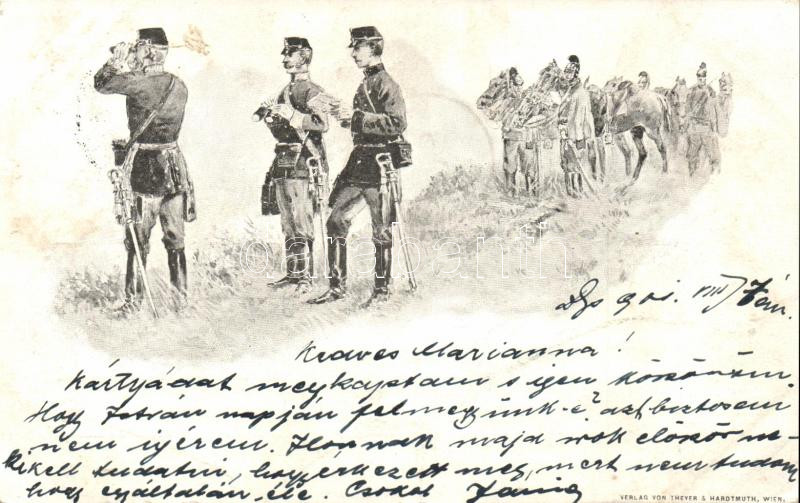 901. VIII/7
Kedves Marianna!
Kártyádat megkaptam s igen köszönöm.
Hogy István napján felmegyünk-e? azt biztosan
nem igérem. Ilonnak majd sok előre ne-
ki kell tudatni, hogy érkezett meg, mert nem tudom
hogy egyáltalán él-e. Csokol
VERLAG VON THEYER & HARDTMUTH, WIEN.
darabanth